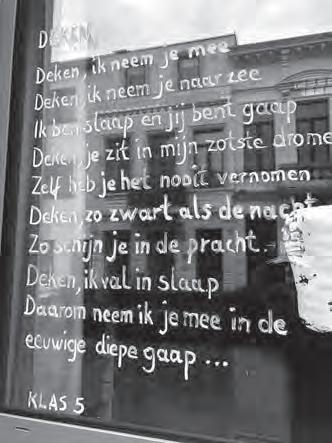 DEKEN
Deken, ik neem je mee
Deken ik neem je naar zee
Ik ben slaap en jij bent gaap
Deken, je zit in mijn zotste drome
Zelf heb je het nooit vernomen
Deken, zo zwart als de nacht
Zo schijn je in de pracht.
Deken, ik val in slaap
Daarom neem ik je mee in de
eeuwige diepe gaap ...
KLAS 5